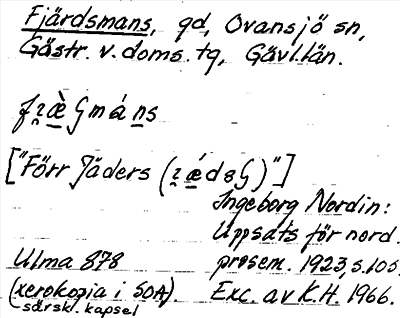 Fjärdsmans, gd, Ovansjö sn,
Gästr. v. doms. tg, Gävl. län.
["Förr Jäders
Ingeborg Nordin:
Uppsats för nord.
Ulma 878 prosem. 1923, s. 105.
(xerokopia i SOA). Exc. av K.H. 1966.
särskl. kapsel